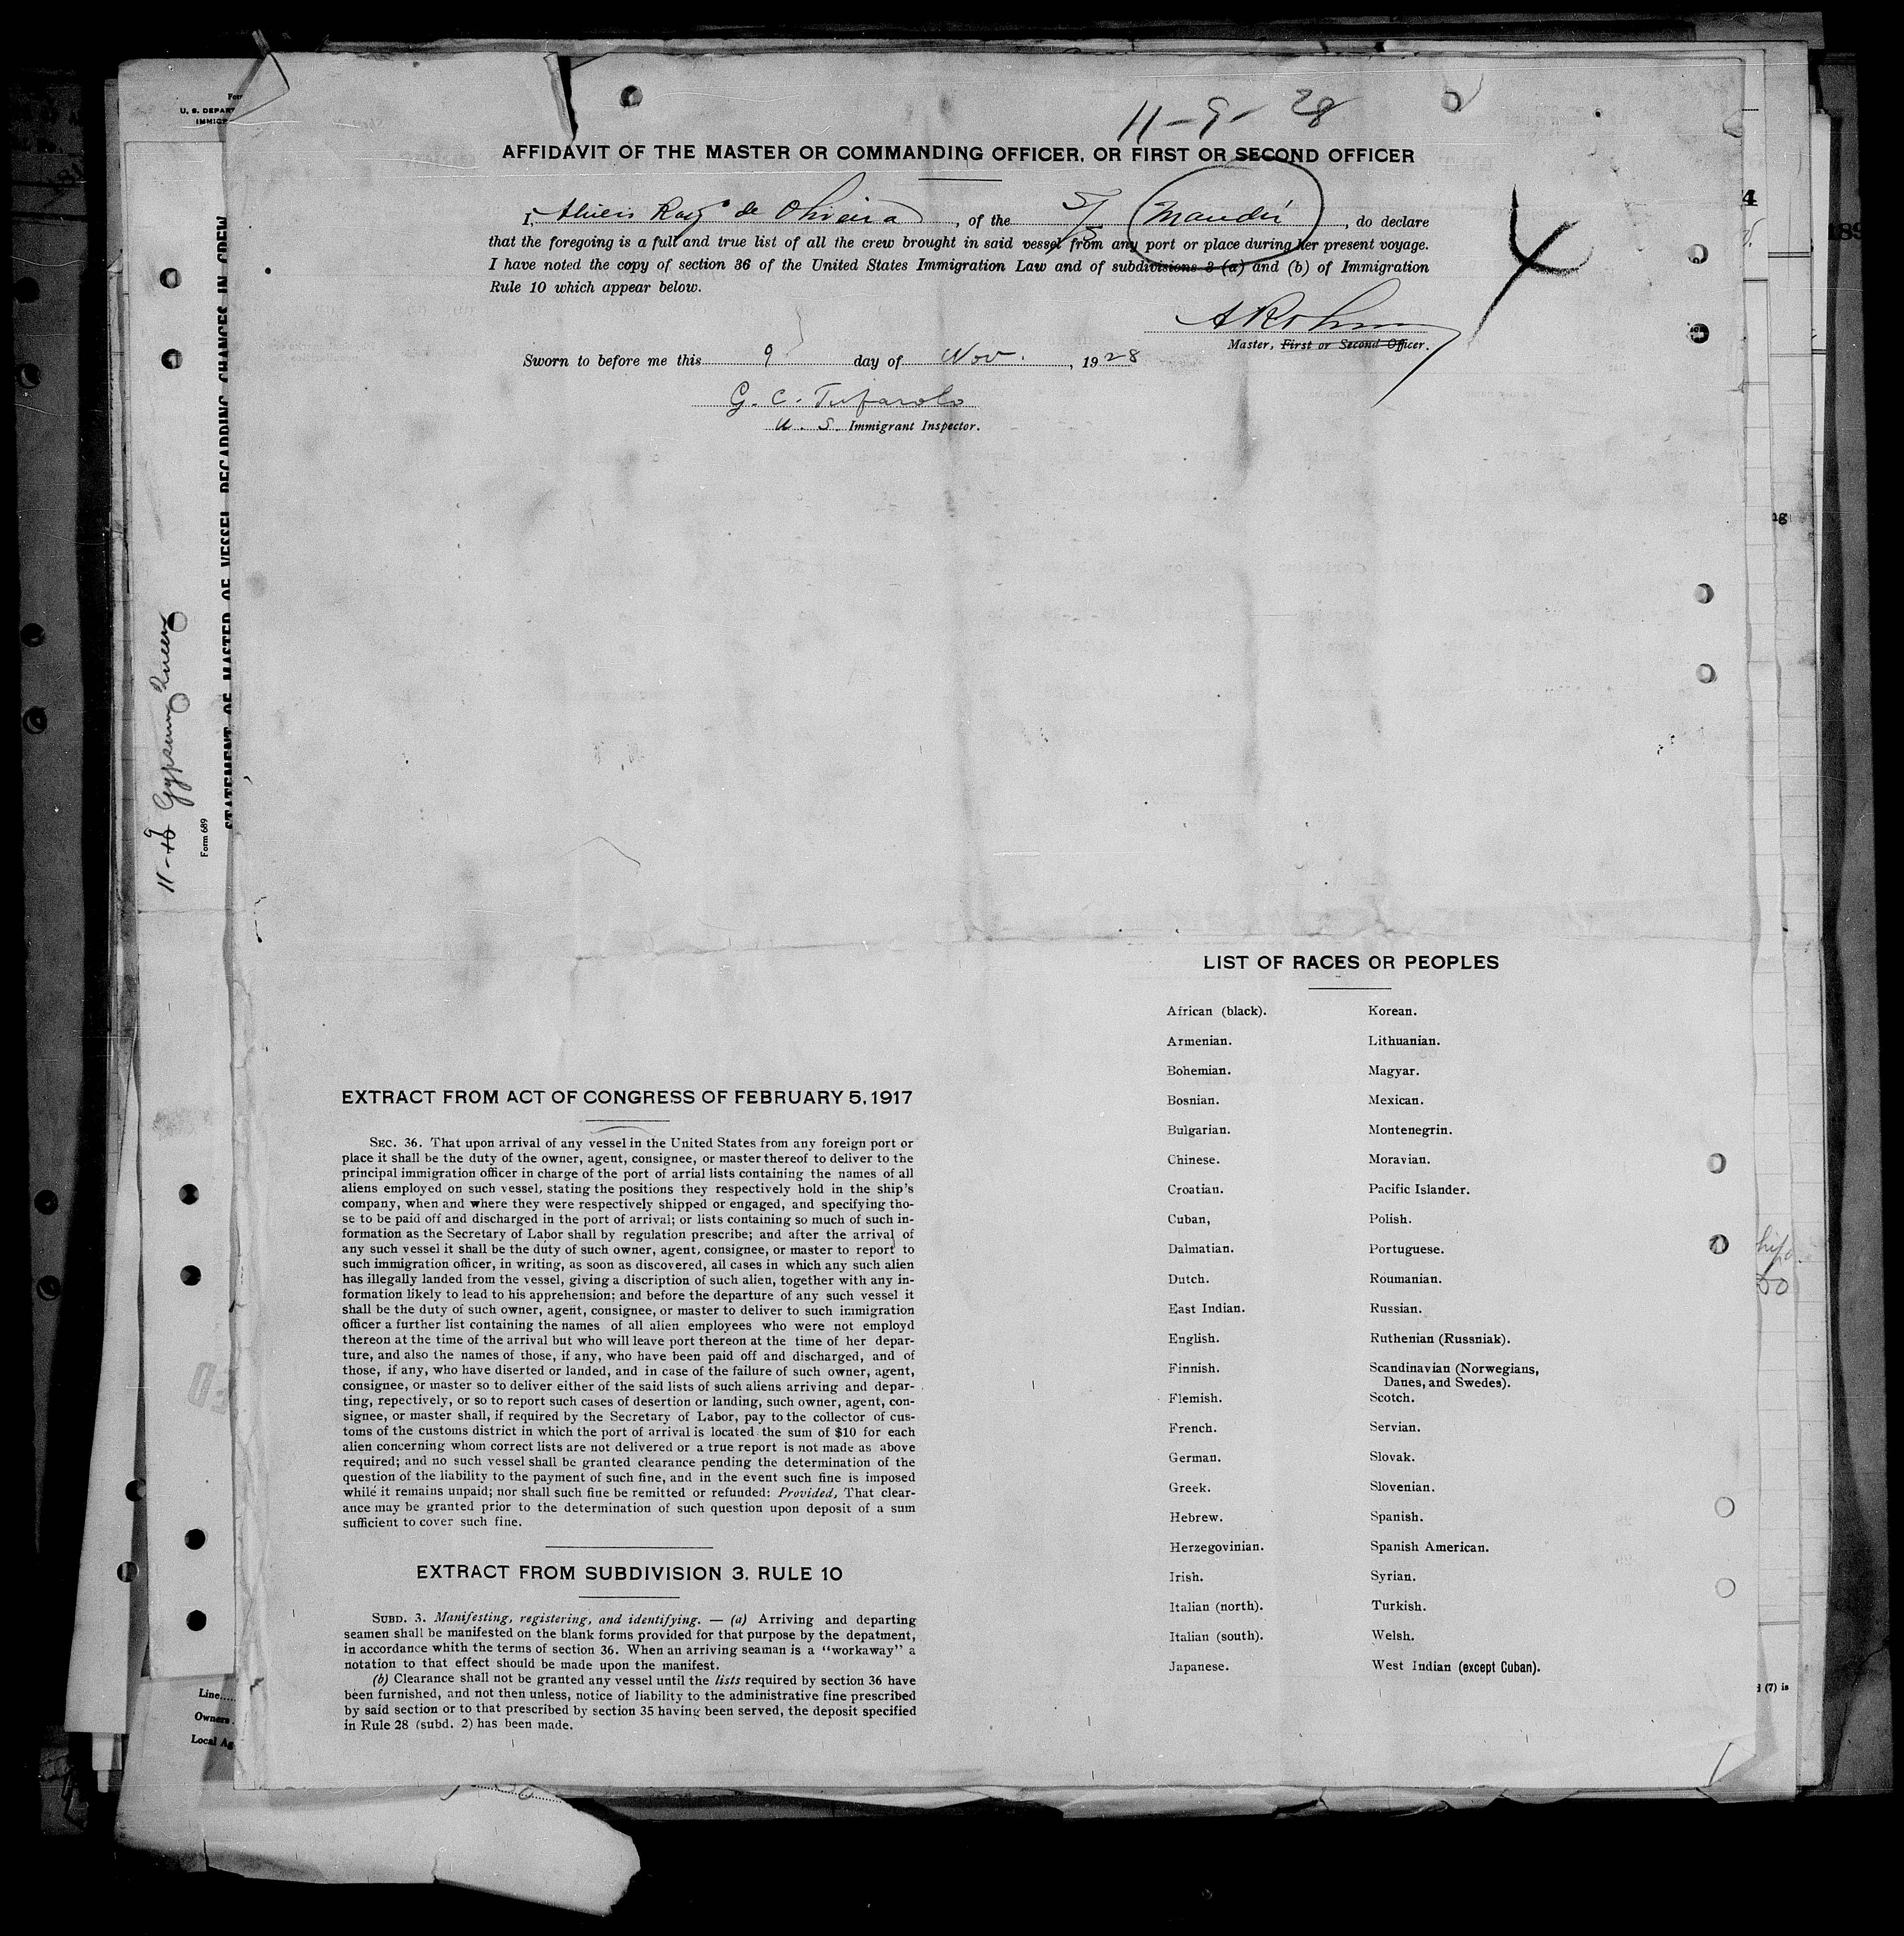 11-9-28
AFFIDAVIT OF THE MASTER OR COMMANDING OFFICER, OR FIRST OR SECOND OFFICER
I, de Oliveira, of the S/S Mandú, do declare
that the foregoing is a full and true list of all the crew brought in said vessel from any port or place during her present voyage.
I have noted the copy of section 36 of the United States Immigration Law and of subdivisions 3 (a) and (b) of Immigration
Rule 10 which appear below.
Master, First or Second Officer.
Sworn to before me this 9 day of Nov., 1928
G. C. Tufarolo
U. S. Immigrant Inspector.
LIST OF RACES OR PEOPLES
African (black).
Armenian.
Bohemian.
Bosnian.
Bulgarian.
Chinese.
Croatian.
Cuban,
Dalmatian.
Dutch.
East Indian.
English.
Finnish.
Flemish.
French.
German.
Greek.
Hebrew.
Herzegovinian.
Irish.
Italian (north).
Italian (south).
Japanese.
Korean.
Lithuanian.
Magyar.
Mexican.
Montenegrin.
Moravian.
Pacific Islander.
Polish.
Portuguese.
Roumanian.
Russian.
Ruthenian (Russniak).
Scandinavian (Norwegians,
Danes, and Swedes).
Scotch.
Servian.
Slovak.
Slovenian.
Spanish.
Spanish American.
Syrian.
Turkish.
Welsh.
West Indian (except Cuban).
EXTRACT FROM ACT OF CONGRESS OF FEBRUARY 5, 1917
SEC. 36. That upon arrival of any vessel in the United States from any foreign port or
place it shall be the duty of the owner, agent, consignee, or master thereof to deliver to the
principal immigration officer in charge of the port of arrial lists containing the names of all
aliens employed on such vessel, stating the positions they respectively hold in the ship's
company, when and where they were respectively shipped or engaged, and specifying tho-
se to be paid off and discharged in the port of arrival; or lists containing so much of such in-
formation as the Secretary of Labor shall by regulation prescribe; and after the arrival of
any such vessel it shall be the duty of such owner, agent, consignee, or master to report to
such immigration officer, in writing, as soon as discovered, all cases in which any such alien
has illegally landed from the vessel, giving a discription of such alien, together with any in-
formation likely to lead to his apprehension; and before the departure of any such vessel it
shall be the duty of such owner, agent, consignee, or master to deliver to such immigration
officer a further list containing the names of all alien employees who were not employd
thereon at the time of the arrival but who will leave port thereon at the time of her depar-
ture, and also the names of those, if any, who have been paid off and discharged, and of
those, if any, who have diserted or landed, and in case of the failure of such owner, agent,
consignee, or master so to deliver either of the said lists of such aliens arriving and depar-
ting, repectively, or so to report such cases of desertion or landing, such owner, agent, con-
signee, or master shall, if required by the Secretary of Labor, pay to the collector of cus-
toms of the customs district in which the port of arrival is located the sum of $10 for each
alien concerning whom correct lists are not delivered or a true report is not made as above
required; and no such vessel shall be granted clearance pending the determination of the
question of the liability to the payment of such fine, and in the event such fine is imposed
while it remains unpaid; nor shall such fine be remitted or refunded: Provided, That clear-
ance may be granted prior to the determination of such question upon deposit of a sum
sufficient to cover such fine.
EXTRACT FROM SUBDIVISION 3, RULE 10
SUBD. 3. Manifesting, registering, and identifying. — (a) Arriving and departing
seamen shall be manifested on the blank forms provided for that purpose by the depatment,
in accordance whith the terms of section 36. When an arriving seaman is a “workaway” a
notation to that effect should be made upon the manifest.
(b) Clearance shall not be granted any vessel until the lists required by section 36 have
been furnished, and not then unless, notice of liability to the administrative fine prescribed
by said section or to that prescribed by section 35 having been served, the deposit specified
in Rule 28 (subd. 2) has been made.
U. S. DEPAR
IMMIG
STATEMENT OF MASTER OF VESSEL REGARDING CHANGES IN CREW
Form 689
11-9 Gypsum Queen
Line
Owners
Local Ag
(7) is